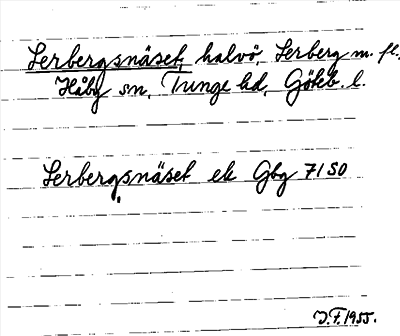 Lerbergsnäset, halvö, Lerberg m. fl.,
Håby sn, Tunge hd, Göteb. l.
Lerbergsnäset ek Gbg 7150
J.F. 1955.